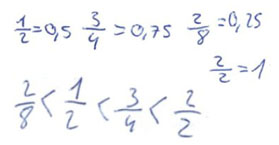 1/2=0,5 3/4=0,75 2/8=0,25
2/2=1
2/8<1/2<3/4<2/2